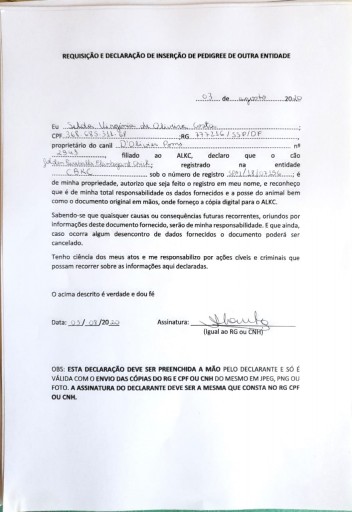 REQUISIÇÃO E DECLARAÇÃO DE INSERÇÃO DE PEDIGREE DE OUTRA ENTIDADE
03 de agosto 2020
Eu Selda Virgínia de Oliveira Costa
CPF RG 777216/SSP/DF
proprietário do canil D'Oliveira nº
2943, filiado ao ALKC, declaro que o cão
registrado na entidade
CBKC sob o número de registro ; é
de minha propriedade, autorizo que seja feito o registro em meu nome, e reconheço
que é de minha total responsabilidade os dados fornecidos e a posse do animal bem
como o documento original em mãos, onde forneço a cópia digital para o ALKC.
Sabendo-se que quaisquer causas ou consequências futuras recorrentes, oriundos por
informações deste documento fornecido, serão de minha responsabilidade. E que ainda,
caso ocorra algum desencontro de dados fornecidos o documento poderá ser
cancelado.
Tenho ciência dos meus atos e me responsabilizo por ações cíveis e criminais que
possam recorrer sobre as informações aqui declaradas.
O acima descrito é verdade e dou fé
Data: 03/08/2020 Assinatura:
(Igual ao RG ou CNH)
OBS: ESTA DECLARAÇÃO DEVE SER PREENCHIDA A MÃO PELO DECLARANTE E SÓ É
VÁLIDA COM O ENVIO DAS CÓPIAS DO RG E CPF OU CNH DO MESMO EM JPEG, PNG OU
FOTO. A ASSINATURA DO DECLARANTE DEVE SER A MESMA QUE CONSTA NO RG CPF
OU CNH.